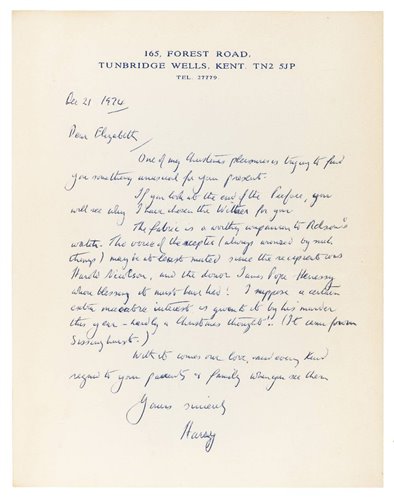 165, FOREST ROAD,
TUNBRIDGE WELLS, KENT. TN2 5JP
TEL. 27779.
Dec 21 1974
Dear Elizabeth,
One of my Christmas pleasures is trying to find
you something unusual for your present.
If you look at the end of the Preface, you
will see why I have chosen the for you
The fabric is a worthy companion to
The voice of the (always aroused by such
things) may be at least muted since the recipient was
Harold Nicolson, and the donor James Pope-Hennessy
whose blessing it must have had! I suppose a certain
extra macabre interest is given to it by his murder
this year - hardly a Christmas thought!. (It came from
Sissinghurst.)
With it comes our love, and every kind
regard to your parents & family when you see them
Yours sincerely
Harry